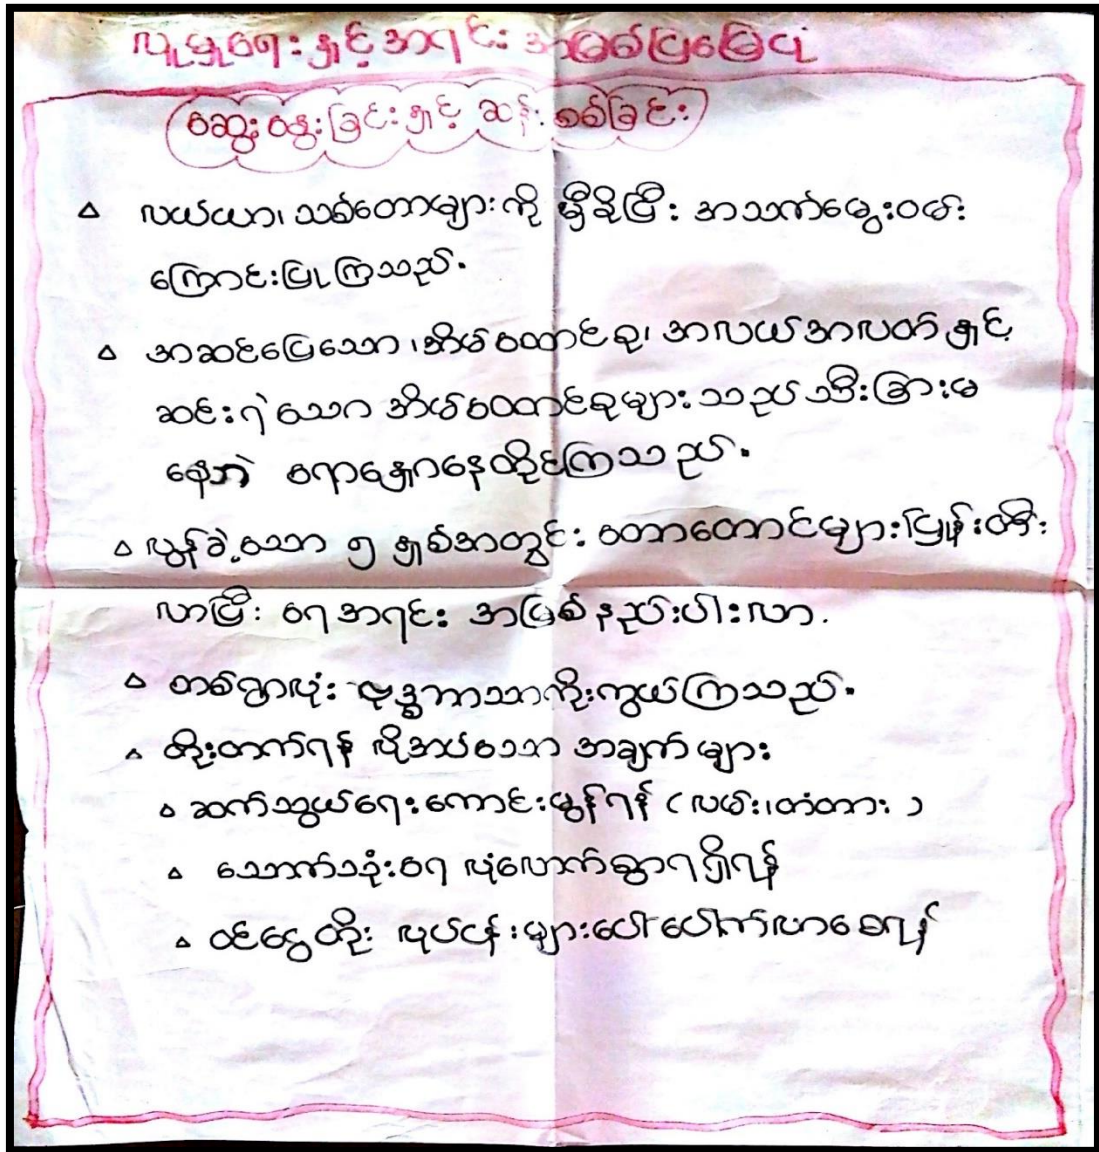 လူမှုရေးနှင့်အရင်းအမြစ်ပြမြေပုံ
ဆွေးနွေးခြင်းနှင့် ဆန်းစစ်ခြင်း
∆ လယ်ယာ၊ သစ်တောများကို မှီခိုပြီး အသက်မွေးဝမ်း
ကြောင်းပြုကြသည်.
∆ အဆင်ပြေသော၊အိမ်ထောင်စု၊ အလယ်အလတ်နှင့်
ဆင်းရဲသော အိမ်ထောင်စုများသည် သီးခြားမ
နေဘဲ ရောနှောနေထိုင်ကြသည်.
∆ လွန်ခဲ့သော ၅ နှစ်အတွင်း တောတောင်များပြုန်းတီး
လာပြီး ရေအရင်းအမြစ်နည်းပါးလာ.
∆ တစ်ရွာလုံး ဗုဒ္ဓဘာသာကိုးကွယ်ကြသည်.
∆ တိုးတက်ရန် လိုအပ်သော အချက်များ
∆ ဆက်သွယ်ရေးကောင်းမွန်ရန် (လမ်း၊တံတား)
∆ သောက်သုံးရေ လုံလောက်စွာရရှိရန်
∆ ဝင်ငွေတိုး လုပ်ငန်းများပေါ်ပေါက်လာစေရန်